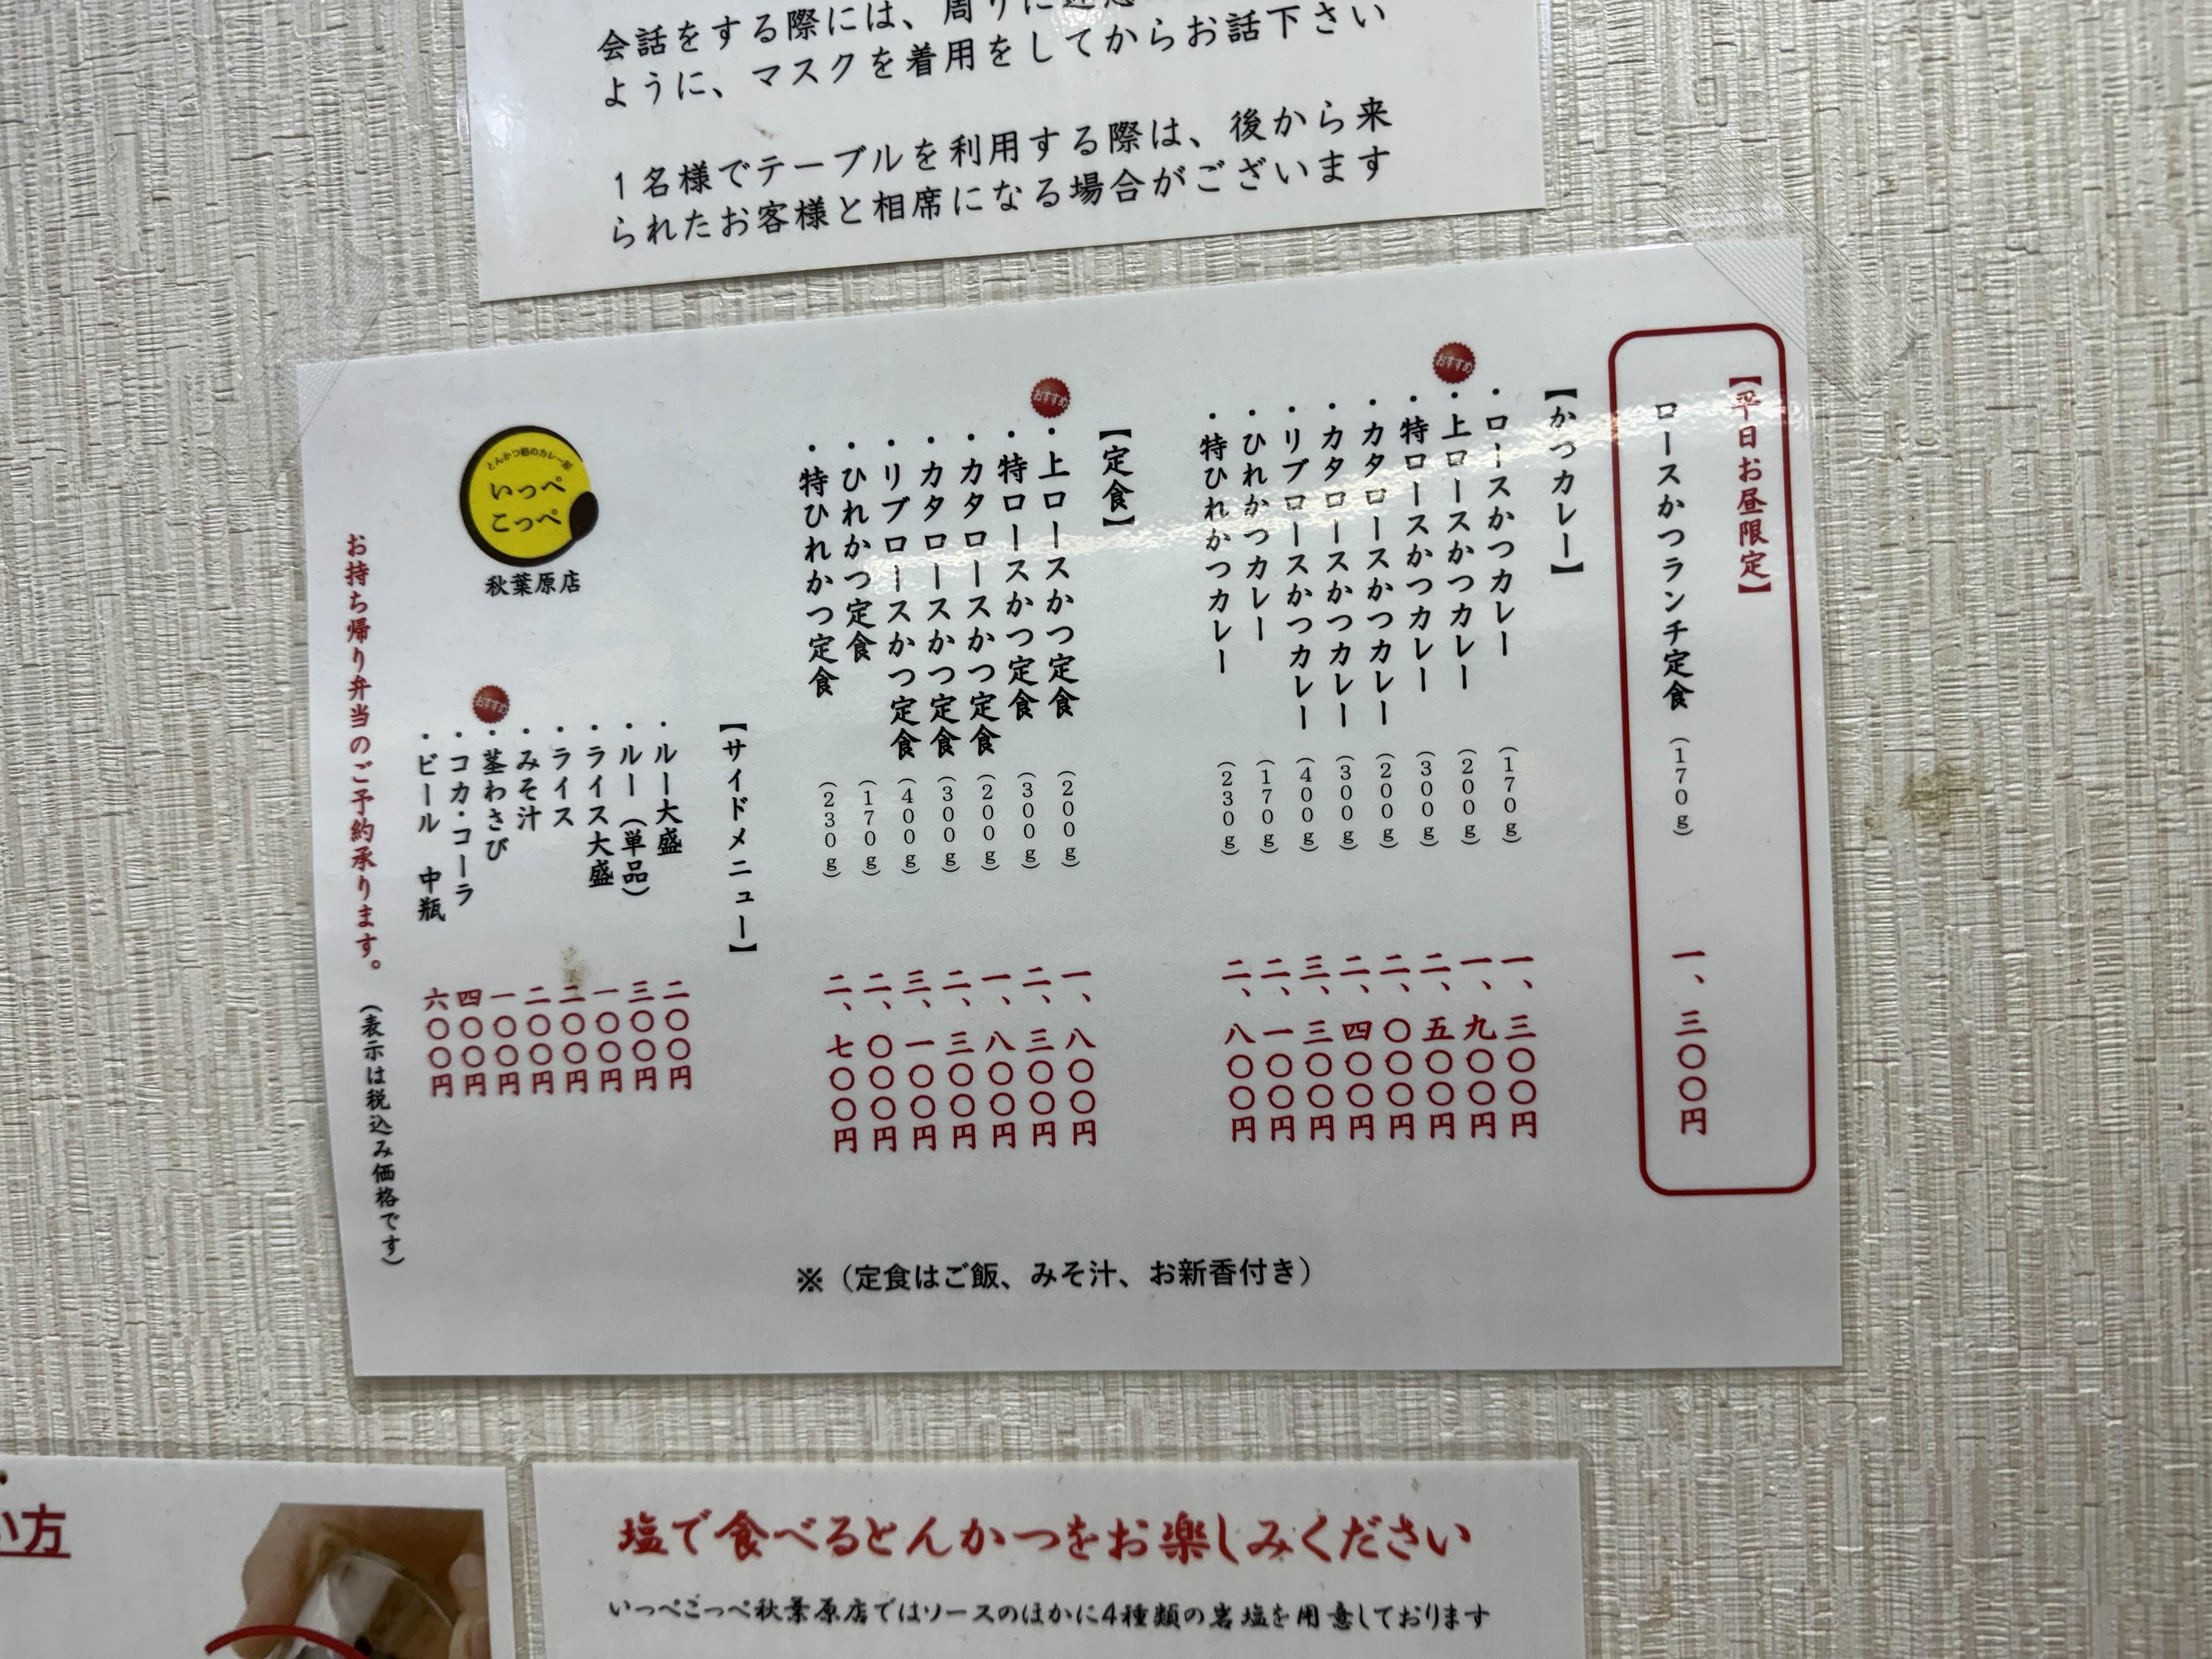 会話をする際には、周りに
ように、マスクを着用をしてからお話下さい
1名様でテーブルを利用する際は、後から来
られたお客様と相席になる場合がございます
【平日お昼限定】
ロースかつランチ定食 (170g) 一、三〇〇円
【かつカレー】
・ロースかつカレー (170g) 一、三〇〇円
おすすめ
・上ロースかつカレー (200g) 一、九〇〇円
・特ロースかつカレー (300g) 二、五〇〇円
・カタロースかつカレー (200g) 二、〇〇〇円
・カタロースかつカレー (300g) 二、四〇〇円
・リブロースかつカレー (400g) 三、三〇〇円
・ひれかつカレー (170g) 二、一〇〇円
・特ひれかつカレー (230g) 二、八〇〇円
【定食】
おすすめ
・上ロースかつ定食 (200g) 一、八〇〇円
・特ロースかつ定食 (300g) 二、三〇〇円
・カタロースかつ定食 (200g) 一、八〇〇円
・カタロースかつ定食 (300g) 二、三〇〇円
・リブロースかつ定食 (400g) 三、一〇〇円
・ひれかつ定食 (170g) 二、〇〇〇円
・特ひれかつ定食 (230g) 二、七〇〇円
※（定食はご飯、みそ汁、お新香付き）
【サイドメニュー】
・ルー大盛 二〇〇円
・ルー（単品） 三〇〇円
・ライス大盛 一〇〇円
・ライス 二〇〇円
・みそ汁 二〇〇円
おすすめ
・茎わさび 一〇〇円
・コカ・コーラ 四〇〇円
・ビール 中瓶 六〇〇円
とんかつ檍のカレー屋
いっぺ
こっぺ
秋葉原店
お持ち帰り弁当のご予約承ります。（表示は税込み価格です）
い方
塩で食べるとんかつをお楽しみください
いっぺこっぺ秋葉原店ではソースのほかに4種類の岩塩を用意しております